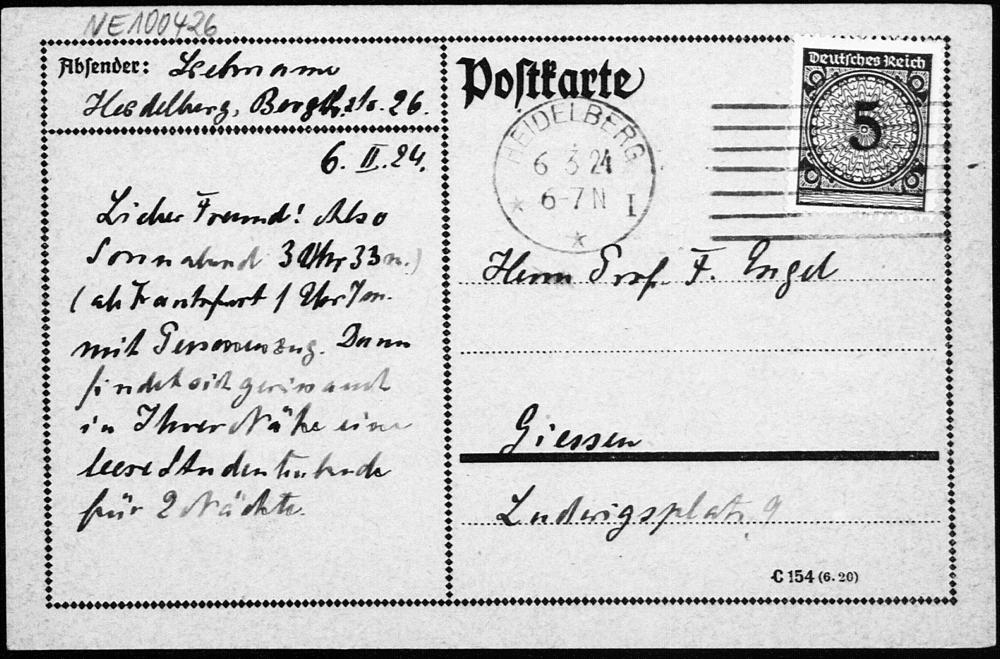 NE100426
Absender: Liebmann
Heidelberg, Bergstr. 26.
6. II. 24.
Lieber Freund! Also
Sonnabend 3 Uhr 33 n.)
(ab Frankfurt 1 Uhr
mit Personenzug. Dann
findet sich gewiss auch
in Ihrer Nähe eine
leere Studentenbude
für 2 Nächte.
Postkarte
Deutsches Reich
5
HEIDELBERG
6 3 24
6-7 N I
Herrn Prof. F. Engel
Giessen
Ludwigsplatz 9
C 154 (6. 20)